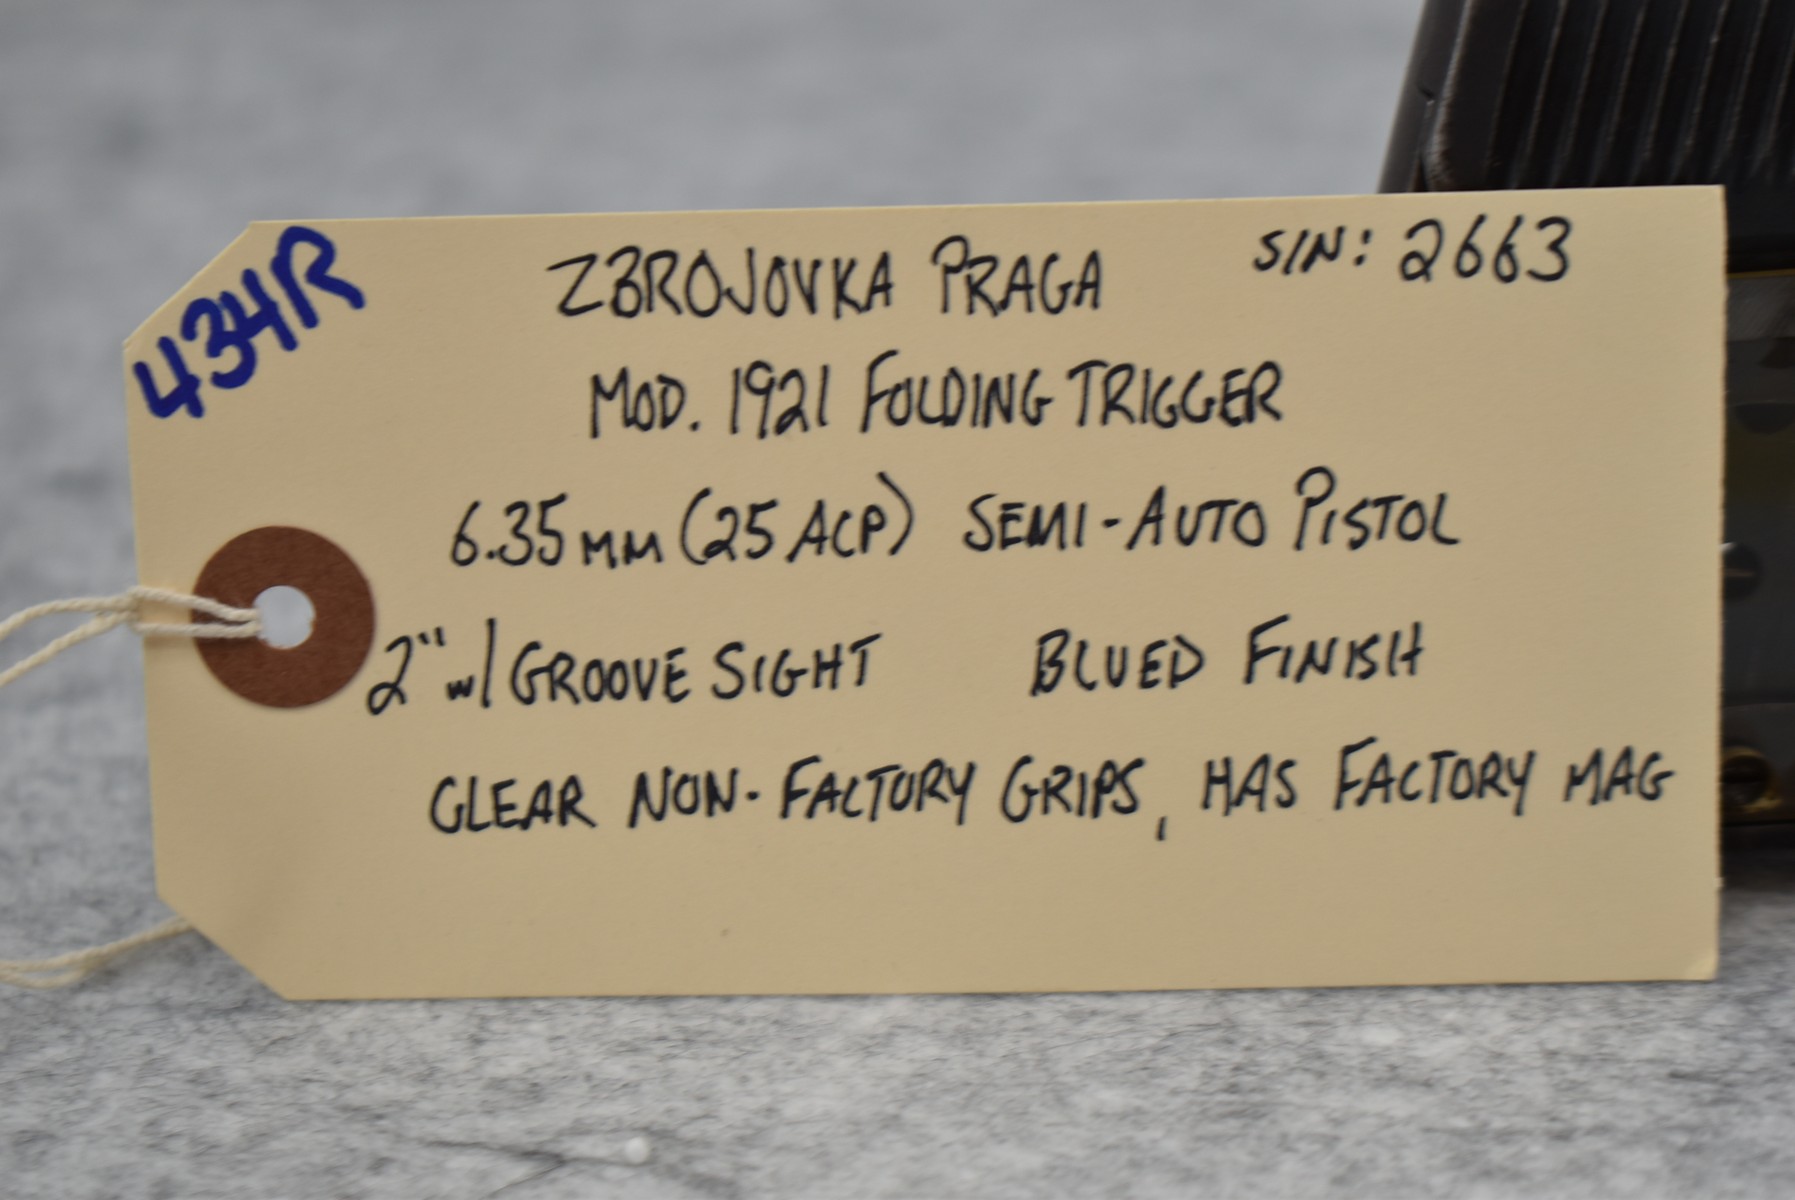 434R
ZBROJOVKA PRAGA S/N: 2663
MOD. 1921 FOLDING TRIGGER
6.35MM (25 ACP) SEMI-AUTO PISTOL
2" w/ GROOVE SIGHT BLUED FINISH
CLEAR NON-FACTORY GRIPS, HAS FACTORY MAG